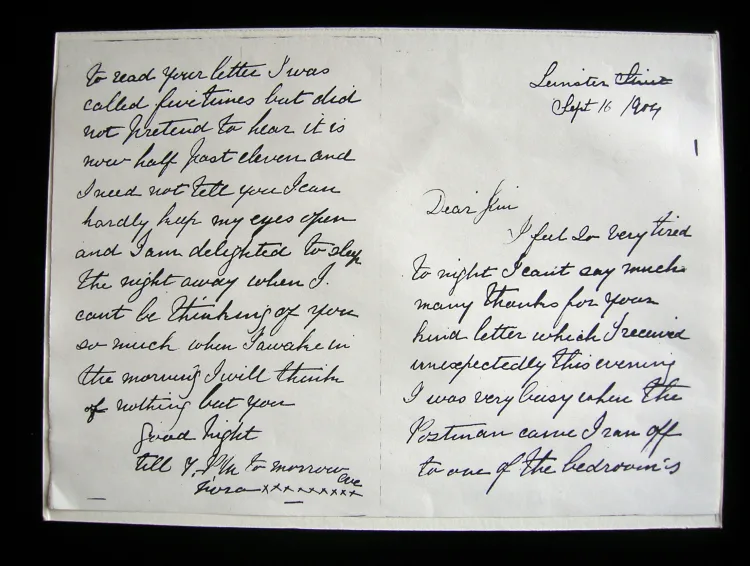 Leinster Street
Sept 16 1904
Dear Jim
I feel so very tired
to night I can't say much
many thanks for your
kind letter which I received
unexpectedly this evening
I was very busy when the
Postman came I ran off
to one of the bedroom's
to read your letter I was
called five times but did
not pretend to hear it is
now half past eleven and
I need not tell you I can
hardly keep my eyes open
and I am delighted to sleep
the night away when I
cant be thinking of you
so much when I awake in
the morning I will think
of nothing but you
Good Night
till 7. P M to morrow
eve
Nora xxxxxxxxx